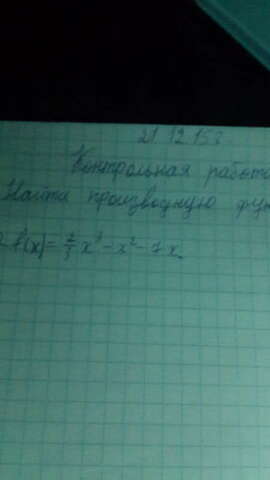 21.12.15г
Контрольная работа
Найти производную фун
f(x) = x³ - x² - 7x